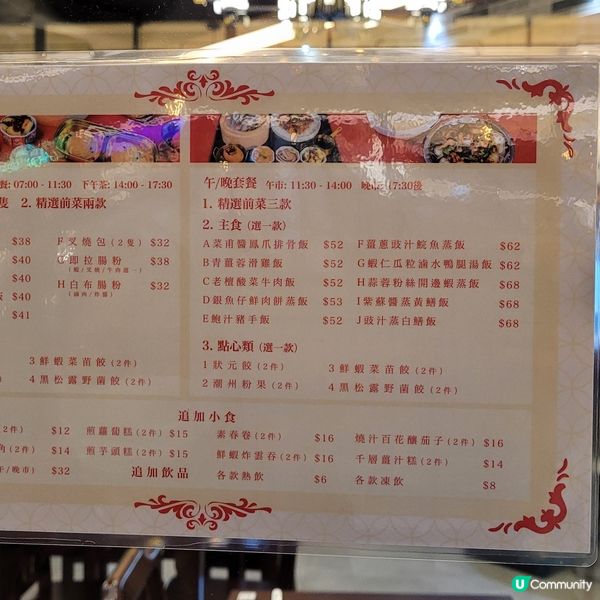 餐: 07:00 - 11:30 下午茶: 14:00 - 17:30
隻 2. 精選前菜兩款
$38 F叉燒包(2隻) $32
$40 G即拉腸粉 $38
(蝦/叉燒/牛肉選一)
$40 H白布腸粉 $32
(滷肉/炸醬)
飯 $40
$41
3鮮蝦菜苗餃(2件)
4黑松露野菌餃(2件)
午/晚套餐 午市: 11:30 - 14:00 晚市: 17:30後
1. 精選前菜三款
2. 主食 (選一款)
A菜甫醬鳳爪排骨飯 $52 F薑蔥豉汁鯇魚蒸飯 $62
B青薑蓉滑雞飯 $52 G蝦仁瓜粒滷水鴨腿湯飯 $62
C老壇酸菜牛肉飯 $52 H蒜蓉粉絲開邊蝦蒸飯 $68
D銀魚仔鮮肉餅蒸飯 $53 I紫蘇醬蒸黃鱔飯 $68
E鮑汁豬手飯 $52 J豉汁蒸白鱔飯 $68
3. 點心類 (選一款)
1狀元餃(2件) 3鮮蝦菜苗餃(2件)
2潮州粉果(2件) 4黑松露野菌餃(2件)
追加小食
(2件) $12 煎蘿蔔糕(2件) $15 素春卷(2件) $16 燒汁百花釀茄子(2件) $16
角(2件) $14 煎芋頭糕(2件) $15 鮮蝦炸雲吞(2件) $16 千層薑汁糕(2件) $14
午/晚市) $32 追加飲品 各款熱飲 $6 各款凍飲 $8
U Community